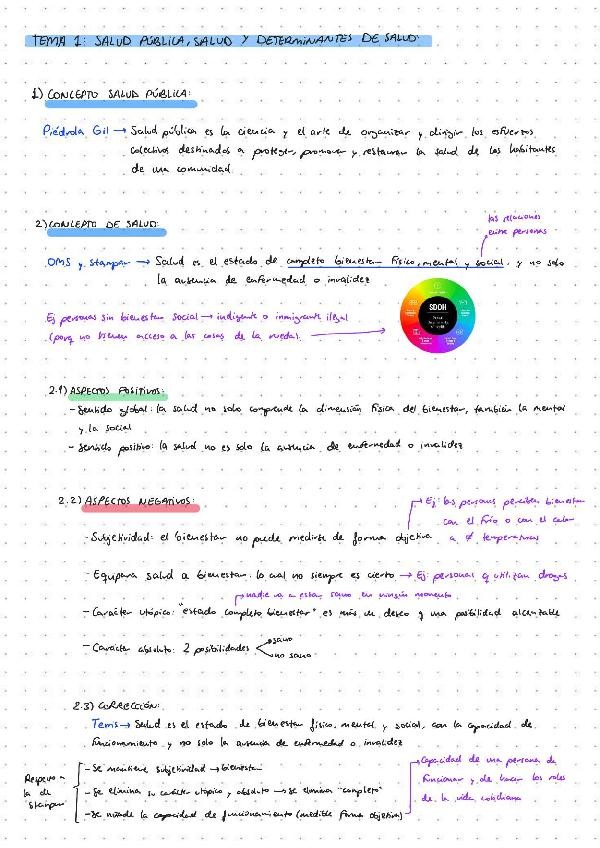 TEMA 1: SALUD PÚBLICA, SALUD Y DETERMINANTES DE SALUD:
1) CONCEPTO SALUD PÚBLICA:
Piédrola Gil → Salud pública es la ciencia y el arte de organizar y dirigir los esfuerzos
colectivos destinados a proteger, promover y restaurar la salud de los habitantes
de una comunidad.
las relaciones
entre personas
2) CONCEPTO DE SALUD:
OMS y Stampar → Salud es el estado de completo bienestar físico, mental y social, y no solo
la ausencia de enfermedad o invalidez
SDOH
Ej personas sin bienestar social → indigente o inmigrante ilegal
(porq no tienen acceso a las cosas de la rueda).
2.1) ASPECTOS POSITIVOS:
- Sentido global: la salud no solo comprende la dimensión física del bienestar, también la mental
y la social
- Sentido positivo: la salud no es solo la ausencia de enfermedad o invalidez
2.2) ASPECTOS NEGATIVOS:
→ Ej: las personas perciben bienestar
con el frío o con el calor
- Subjetividad: el bienestar no puede medirse de forma objetiva a ≠ temperaturas
- Equipara salud a bienestar, lo cual no siempre es cierto → Ej: personas q utilizan drogas
→ nadie va a estar sano en ningún momento
- Carácter utópico: "estado completo bienestar" es más un deseo q una posibilidad alcanzable
- Carácter absoluto: 2 posibilidades
sano
no sano
2.3) CORRECCIÓN:
Terris → Salud es el estado de bienestar físico, mental y social, con la capacidad de
funcionamiento y no solo la ausencia de enfermedad o invalidez
Respecto a
la de
Stampar
- Se mantiene subjetividad → bienestar
- Se elimina su carácter utópico y absoluto → se elimina "completo"
- Se añade la capacidad de funcionamiento (medible forma objetiva)
→ Capacidad de una persona de
funcionar y de hacer los roles
de la vida cotidiana